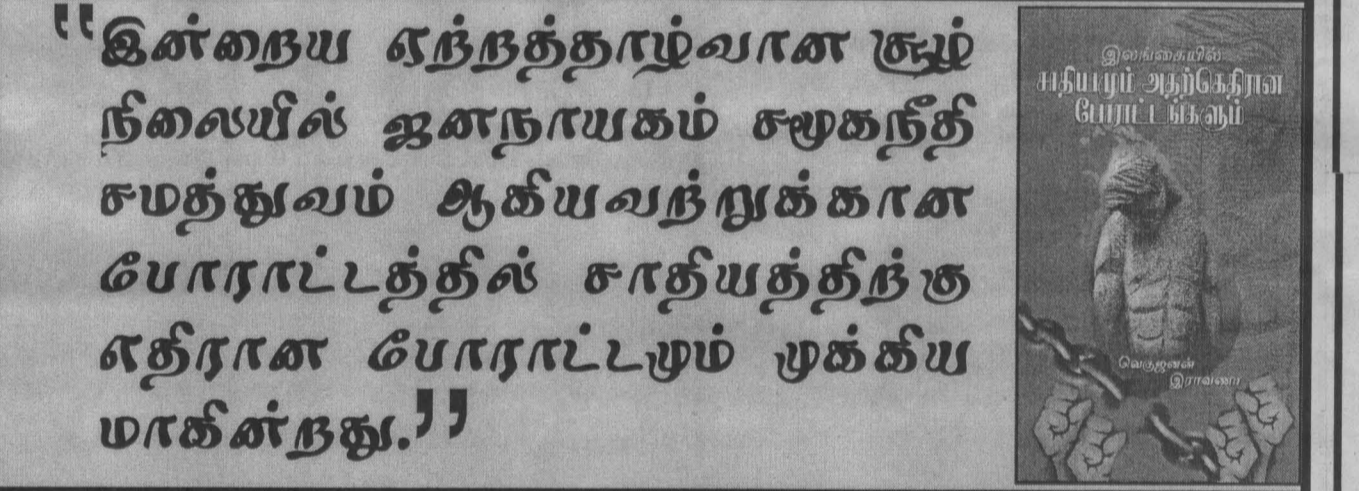 “இன்றைய ஏற்றத்தாழ்வான சூழ்
நிலையில் ஜனநாயகம் சமூகநீதி
சமத்துவம் ஆகியவற்றுக்கான
போராட்டத்தில் சாதியத்திற்கு
எதிரான போராட்டமும் முக்கிய
மாகின்றது.”
இலங்கையில்
சாதியமும் அதற்கெதிரான
போராட்டங்களும்
வெகுஜனன்
இராவணா